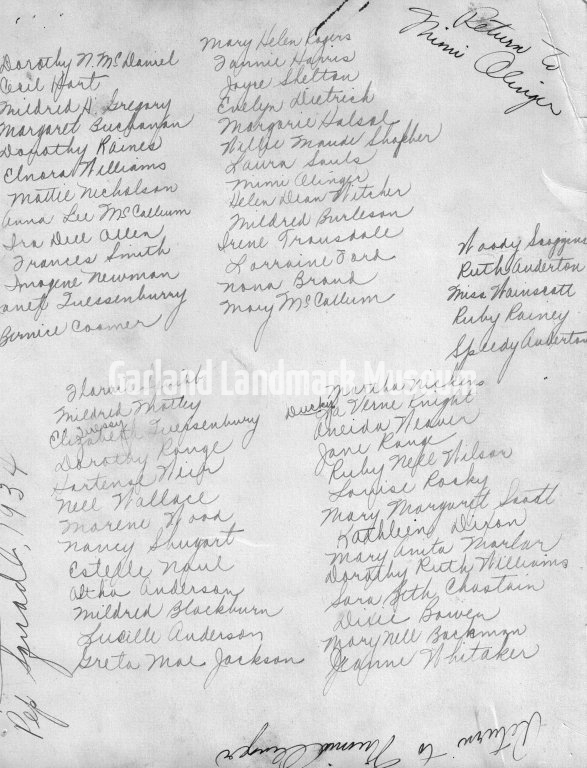 Return To
Mimi Olinger
Dorothy N. McDaniel
Cecil Hart
Mildred H. Gregory
Margaret Buchanan
Dorothy Raines
Elnora Williams
Mattie Nicholson
Anna Lee McCallum
Ira Dell Allen
Frances Smith
Imogene Newman
Janet Tuessenburry
Bernice Coomer
Mary Helen Rogers
Fannie Harris
Joyce Shelton
Evelyn Dietrich
Margorie Halsal
Willie Maude Shugher
Laura Sauls
Mimi Olinger
Helen Dean Witcher
Mildred Burleson
Irene Trousdale
Lorraine Ford
Nona Brand
Mary McCallum
Woody Scoggins
Ruth Anderton
Miss Wainscott
Ruby Rainey
Speedy Anderton
Garland Landmark Museum
Mildred Motley
Elizabeth Tuessenbury
Dorothy Range
Hortense Weir
Nell Wallace
Marene Wood
Nancy Shugart
Estelle Naul
Altha Anderson
Mildred Blackburn
Lucille Anderson
Greta Mae Jackson
Bertha Nickens
Ducky La Verne Knight
Oneida Weaver
Jane Range
Ruby Nell Wilson
Louise Rosky
Mary Margaret Scott
Kathleen Dixon
Mary Anita Marlar
Dorothy Ruth Williams
Sara Beth Chastain
Dixie Bowen
Mary Nell Backman
Jeanne Whitaker
Pep Squad, 1934
Return to Mimi Olinger